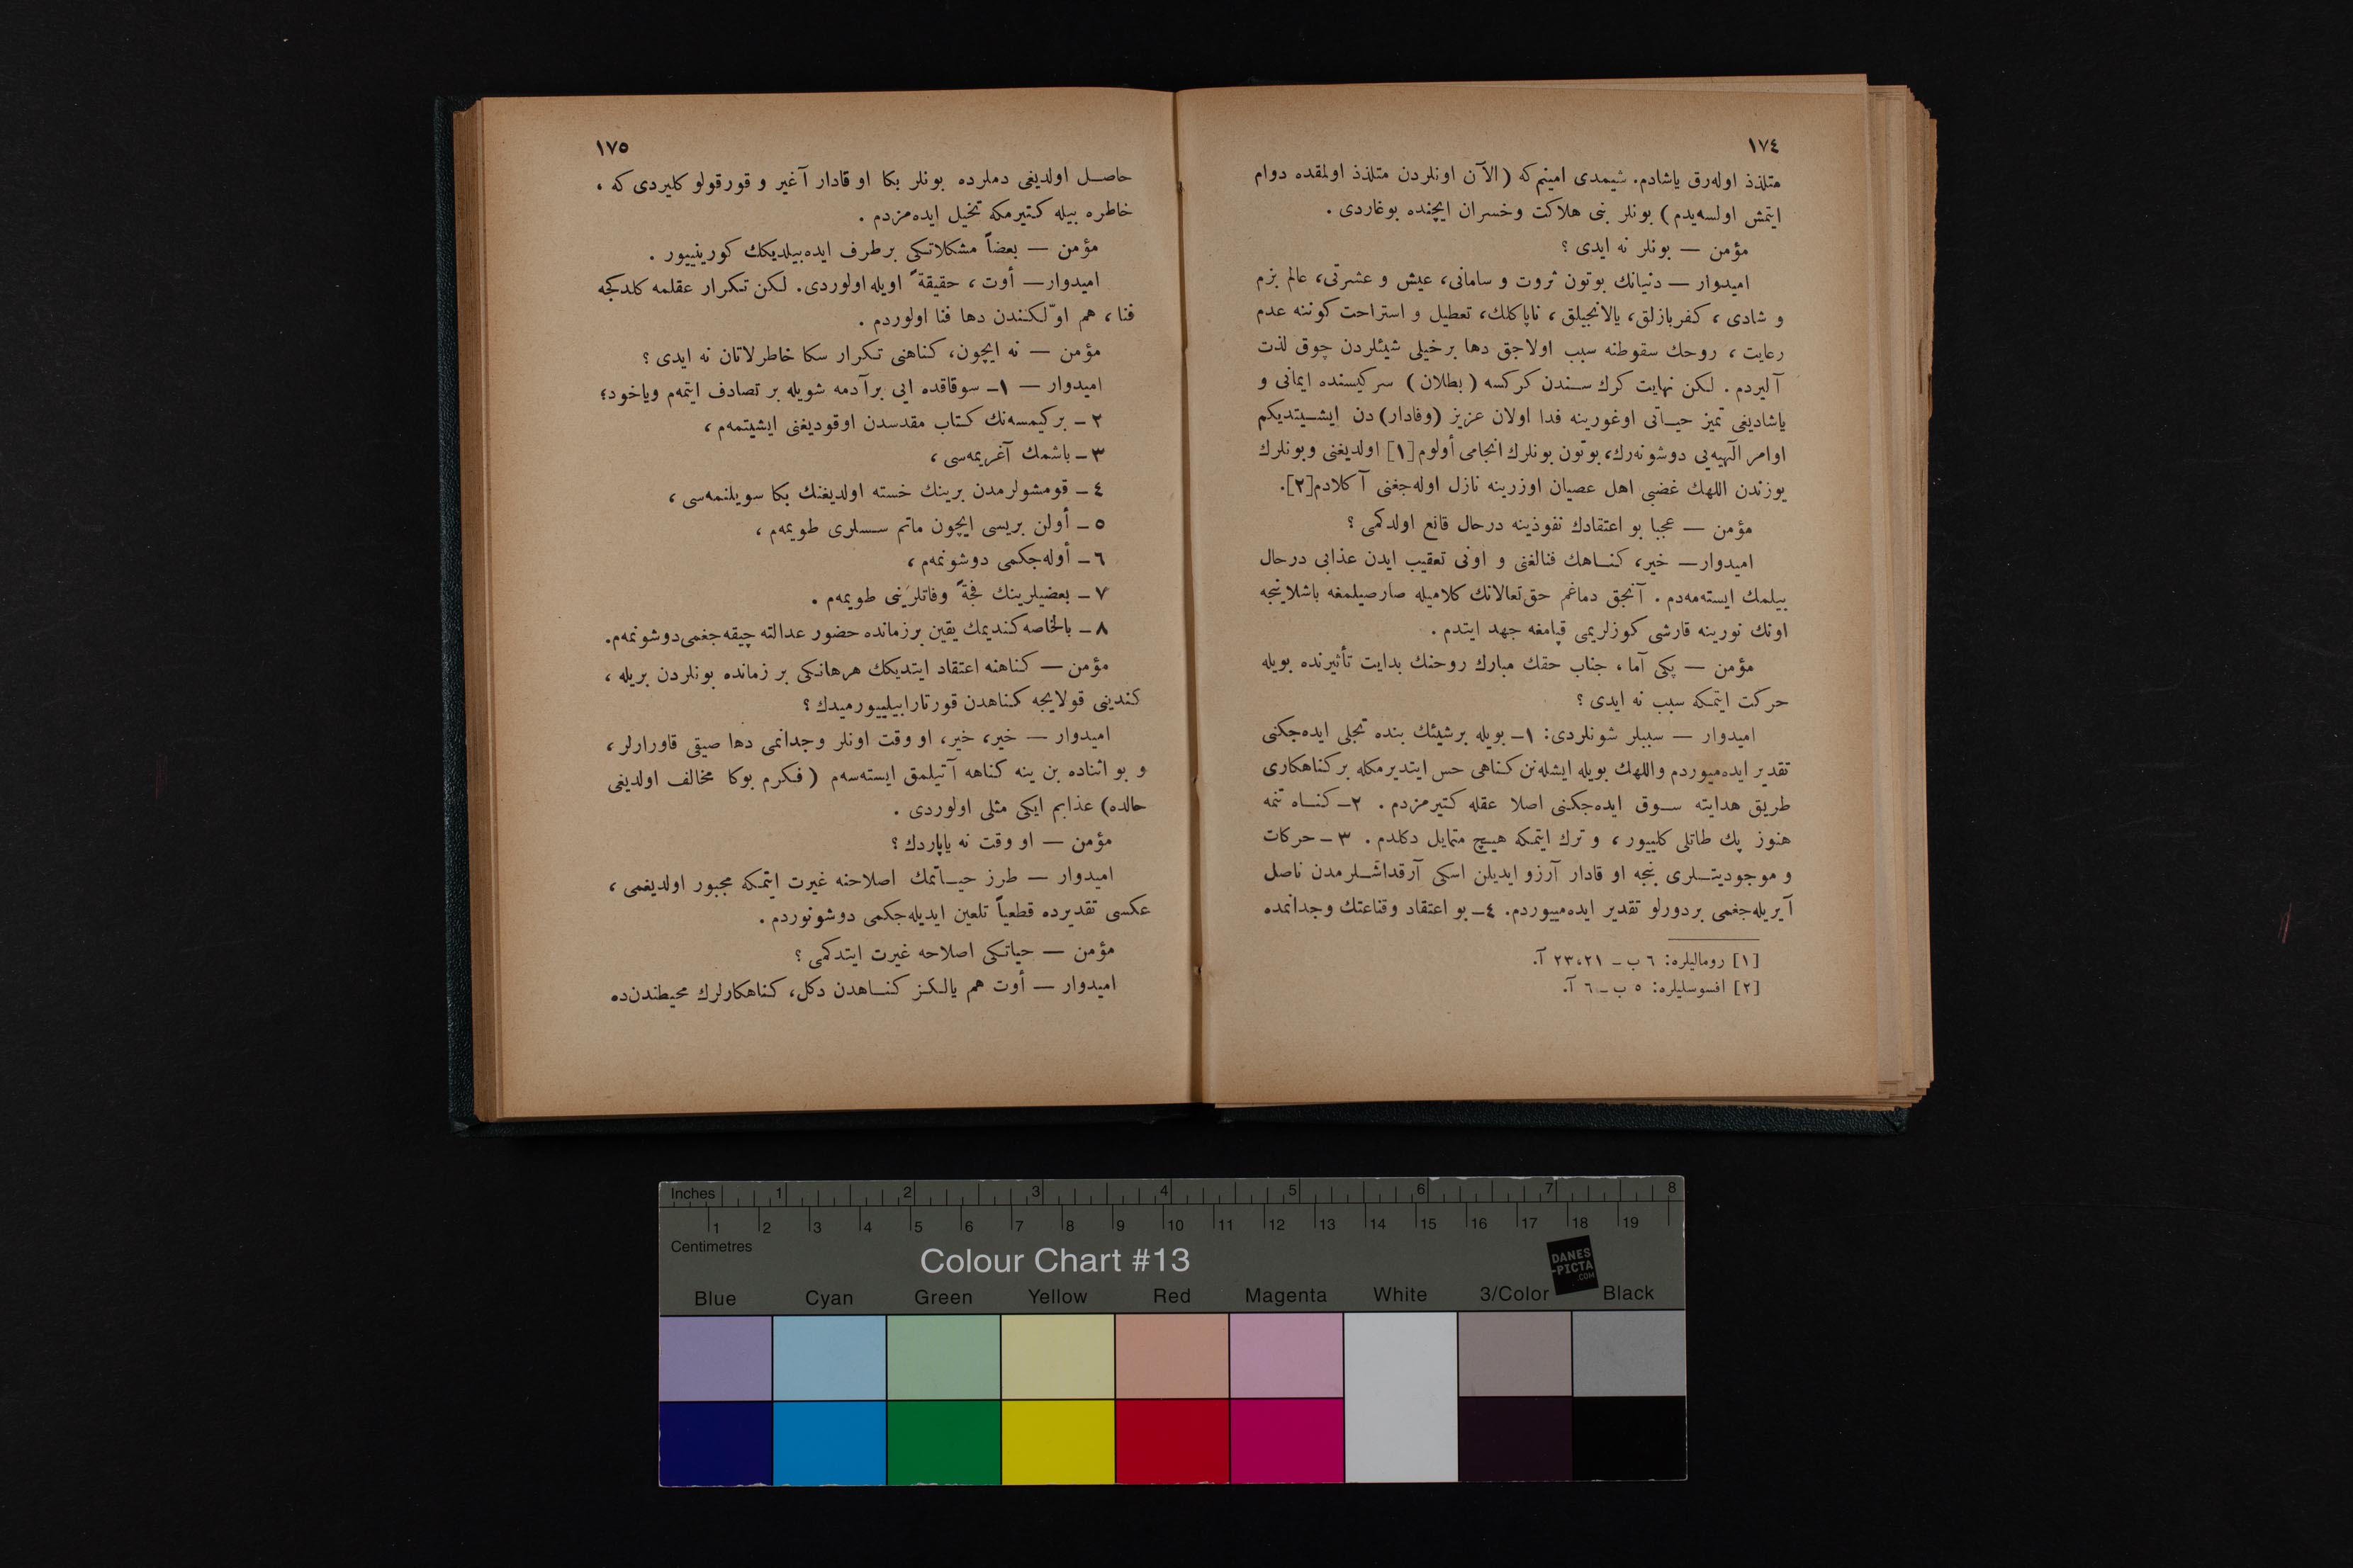 ١٧٤
متلذذ اوله‌رق ياشادم. شيمدی امينم كه (الآن اونلردن متلذذ اولمقده دوام
ايتمش اولسه‌يدم) بونلر بنی هلاكت و خسران ايچنده بوغاردی.
مؤمن — بونلر نه ايدی؟
اميدوار — دنيانك بوتون ثروت و سامانی، عيش و عشرتی، عالم بزم
و شادی، كفربازلق، يالانجيلق، ناپاكلك، تعطيل و استراحت كوننه عدم
رعايت، روحك سقوطنه سبب اولاجق دها برخيلی شيئلردن چوق لذت
آليردم. لكن نهايت كرك سندن كركسه (بطلان) سركيسنده ايمانی و
ياشاديغی تميز حياتی اوغورينه فدا اولان عزيز (وفادار) دن ايشيتديكم
اوامر الٓهيه‌يی دوشونه‌رك، بوتون بونلرك انجامی أولوم [١] اولديغنی وبونلرك
يوزندن اللهك غضبی اهل عصيان اوزرينه نازل اوله‌جغنی آكلادم[٢].
مؤمن — عجبا بو اعتقادك نفوذينه درحال قانع اولدكمی؟
اميدوار — خير، كناهك فنالغنی و اونی تعقيب ايدن عذابی درحال
بيلمك ايسته‌مه‌دم. آنجق دماغم حق‌تعالانك كلاميله صارصيلمغه باشلاينجه
اونك نورينه قارشی كوزلريمی قپامغه جهد ايتدم.
مؤمن — پكی آما، جناب حقك مبارك روحنك بدايت تأثيرنده بويله
حركت ايتمكه سبب نه ايدی؟
اميدوار — سببلر شونلردی: ١ـ بويله برشيئك بنده تجلی ايده‌جكنی
تقدير ايده‌ميوردم واللهك بويله ايشله‌نن كناهی حس ايتديرمكله بر كناهكاری
طريق هدايته سوق ايده‌جكنی اصلا عقله كتيرمزدم. ٢ـ كناه تنمه
هنوز پك طاتلی كلييور، و ترك ايتمكه هيچ متمايل دكلدم. ٣ـ حركات
و موجوديتلری بنجه او قادار آرزو ايديلن اسكی آرقداشلرمدن ناصل
آيريله‌جغمی بردورلو تقدير ايده‌مييوردم. ٤ـ بو اعتقاد وقناعتك وجدانمده
[١] روماليلره: ٦ ب ـ ٢٣،٢١ آ.
[٢] افسوسليلره: ٥ ب ـ ٦ آ.
١٧٥
حاصل اولديغی دملرده بونلر بكا او قادار آغير و قورقولو كليردی كه،
خاطره بيله كتيرمكه تخيل ايده‌مزدم.
مؤمن — بعضاً مشكلاتكی برطرف ايده‌بيلديكك كورينييور.
اميدوار — أوت، حقيقةً اويله اولوردی. لكن تكرار عقلمه كلدكجه
فنا، هم اوّلكندن دها فنا اولوردم.
مؤمن — نه ايچون، كناهنی تكرار سكا خاطرلاتان نه ايدی؟
اميدوار — ١ـ سوقاقده ايی برآدمه شويله بر تصادف ايتمه‌م وياخود؛
٢ـ بركيمسه‌نك كتاب مقدسدن اوقوديغنی ايشيتمه‌م،
٣ـ باشمك آغريمه‌سی،
٤ـ قومشولرمدن برينك خسته اولديغنك بكا سويلنمه‌سی،
٥ـ أولن بريسی ايچون ماتم سسلری طويمه‌م،
٦ـ أوله‌جكمی دوشونمه‌م،
٧ـ بعضيلرينك فجةً وفاتلرينی طويمه‌م.
٨ـ بالخاصه كنديمك يقين برزمانده حضور عدالته چيقه‌جغمی دوشونمه‌م.
مؤمن — كناهنه اعتقاد ايتديكك هرهانكی بر زمانده بونلردن بريله،
كندينی قولايجه كناهدن قورتارابيلييورميدك؟
اميدوار — خير، خير، او وقت اونلر وجدانمی دها صيقی قاورارلر،
و بو اثناده بن ينه كناهه آتيلمق ايسته‌سه‌م (فكرم بوكا مخالف اولديغی
حالده) عذابم ايكی مثلی اولوردی.
مؤمن — او وقت نه ياپاردك؟
اميدوار — طرز حياتمك اصلاحنه غيرت ايتمكه مجبور اولديغمی،
عكسی تقديرده قطعياً تلعين ايديله‌جكمی دوشونوردم.
مؤمن — حياتكی اصلاحه غيرت ايتدكمی؟
اميدوار — أوت هم يالكز كناهدن دكل، كناهكارلرك محيطندن‌ده
Inches 1 2 3 4 5 6 7 8
1 2 3 4 5 6 7 8 9 10 11 12 13 14 15 16 17 18 19
Centimetres
Colour Chart #13
DANES
-PICTA
.COM
Blue Cyan Green Yellow Red Magenta White 3/Color Black